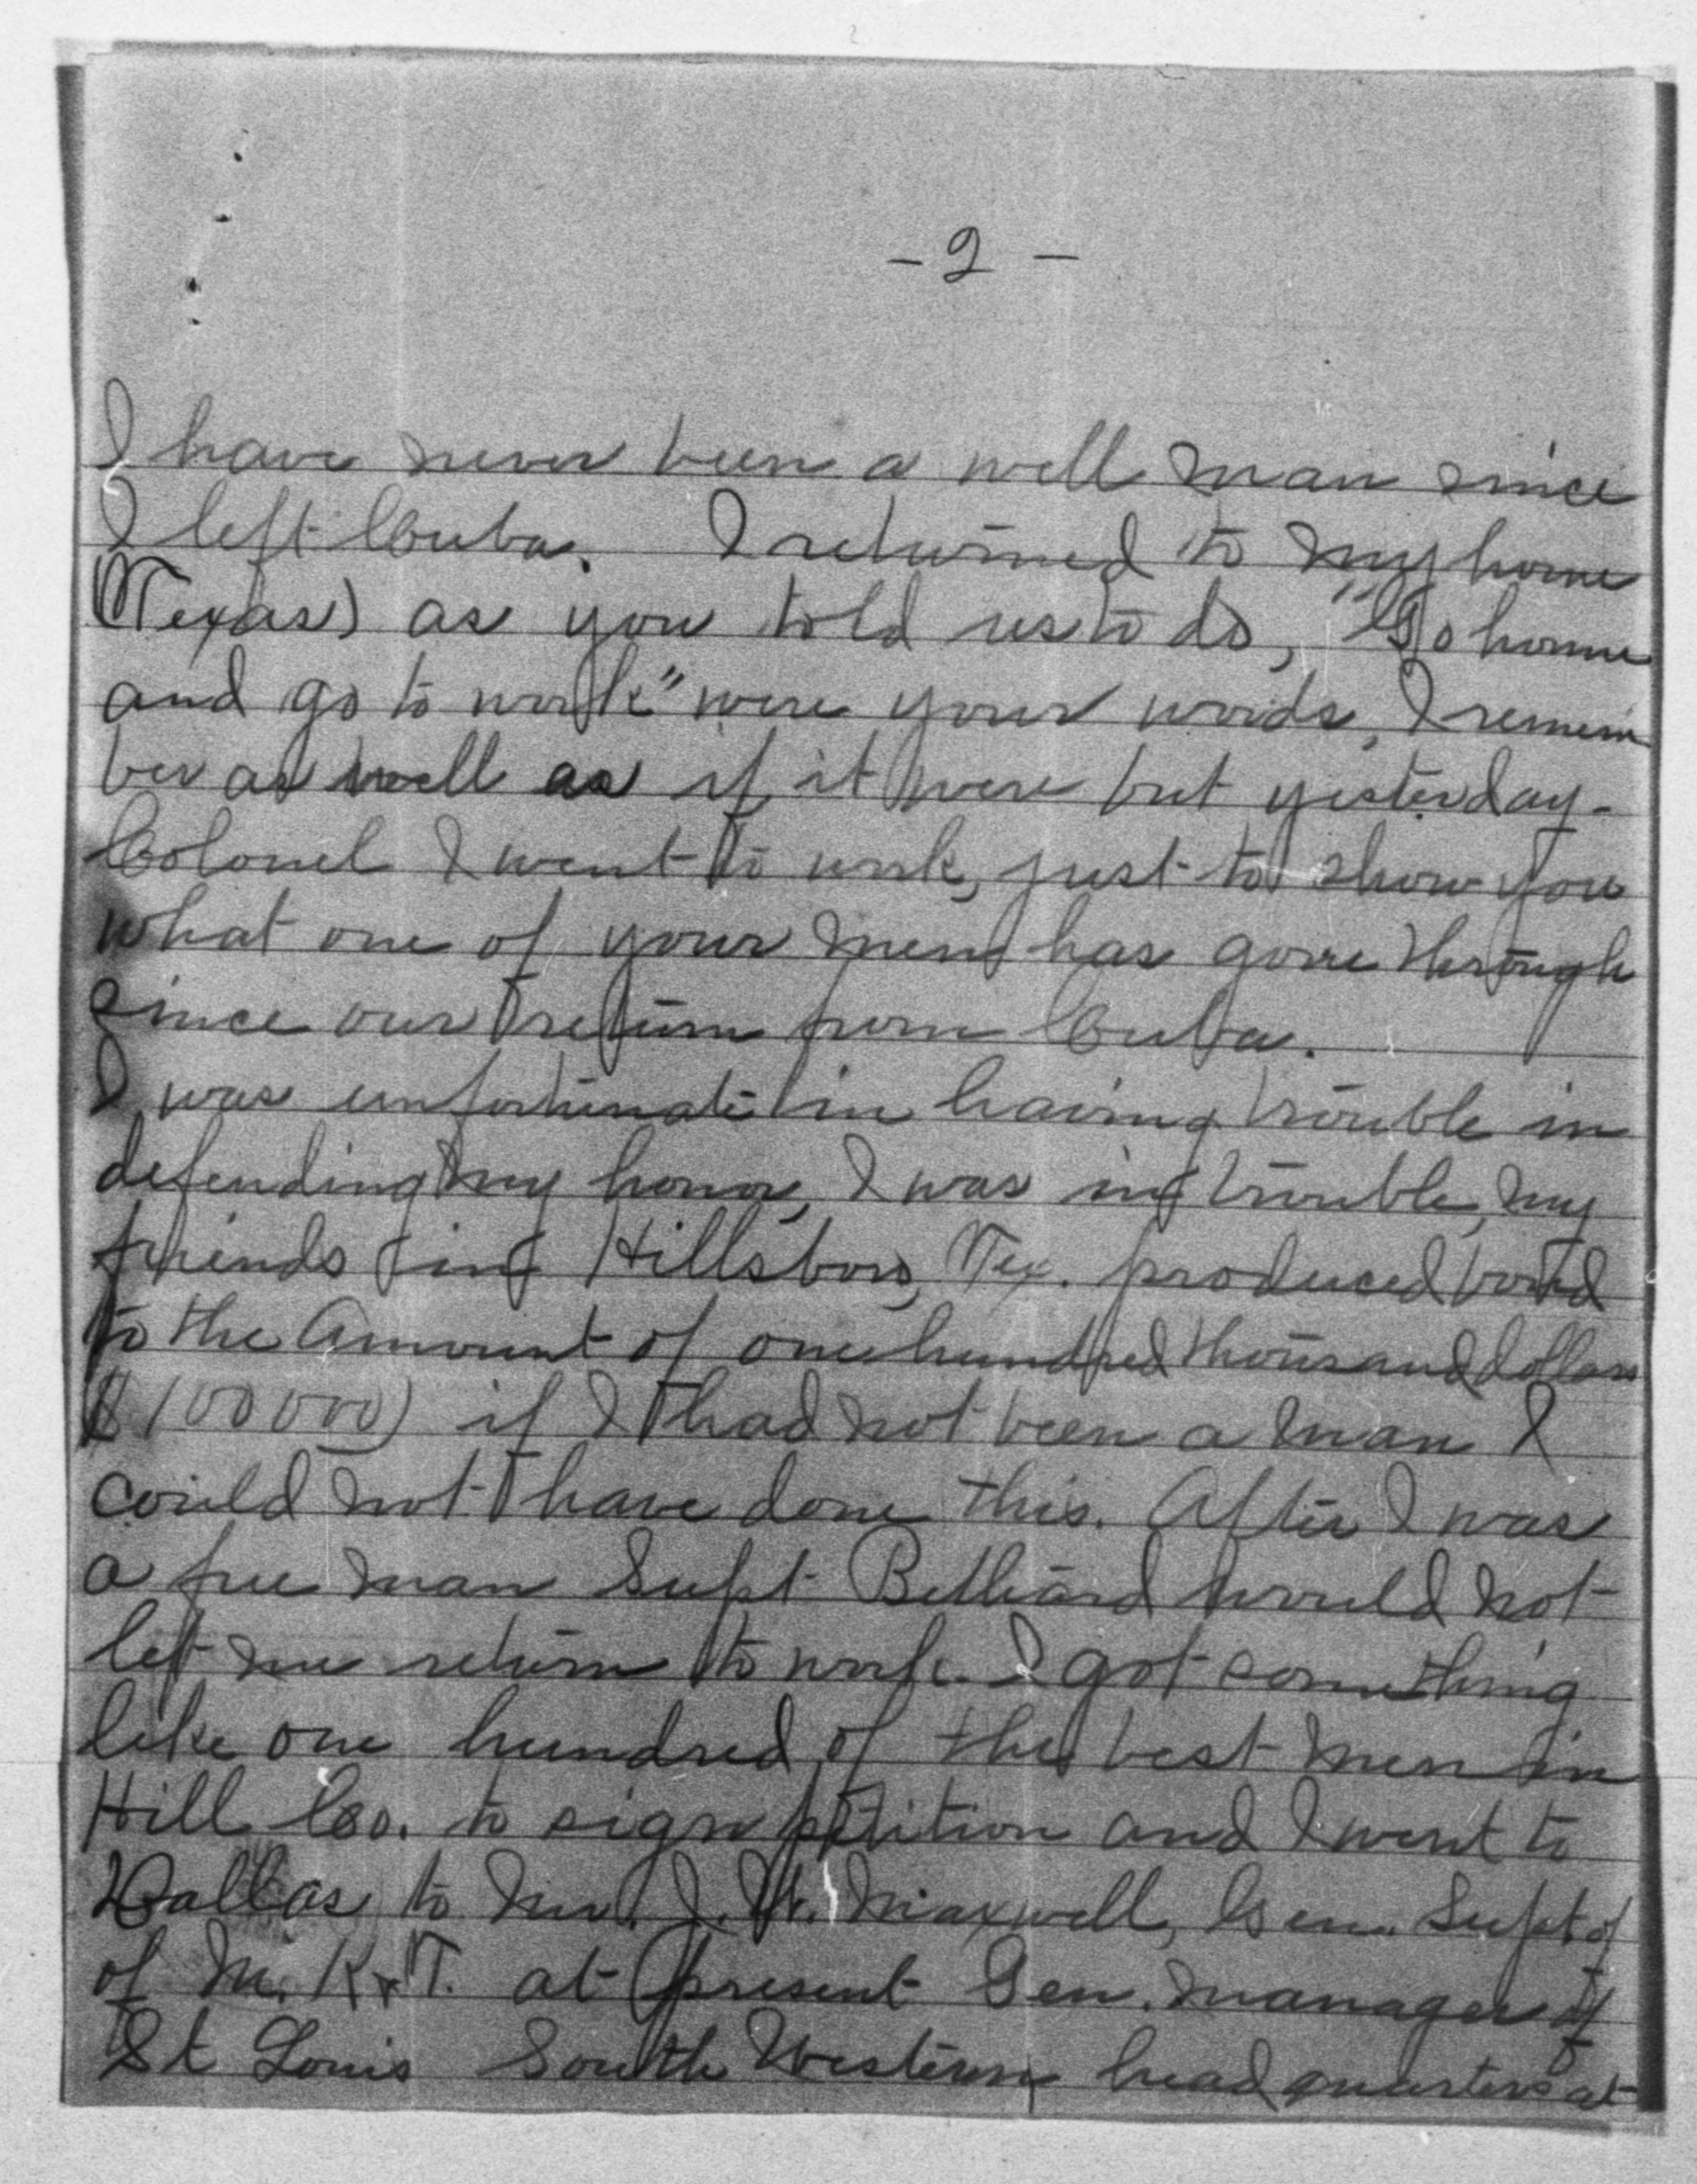 - 2 -
I have never been a well man since
I left Cuba. I returned to my home
(Texas) as you told us to do, "Go home
and go to work" were your words, I remem
ber as well as if it were but yesterday.
Colonel I went to work, just to show you
what one of your men has gone through
since our return from Cuba.
I was unfortunate in having trouble in
defending my honor, I was in trouble, my
friends in Hillsboro, Tex. produced bond
to the amount of one hundred thousand dollars
$100000) if I had not been a man I
could not have done this. After I was
a free man Supt. would not
let me return to work. I got something
like one hundred of the best men in
Hill Co. to sign petition and I went to
Dallas to Mr. J. W. Maxwell, Gen. Supt of
of M. K & T. at present Gen. Manager of
St Louis South Western headquarters at